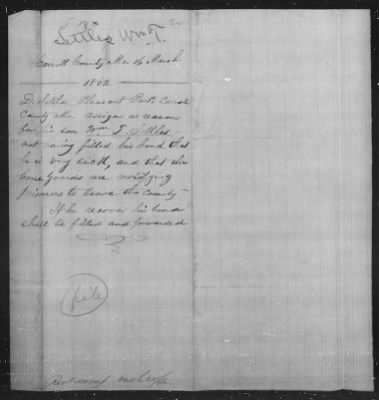 Settles Wm T.
Carroll County Mo 16 March
1862
D. Settles Pleasant Park Carroll
County Mo. assigns as reason
for his son Wm T. Settles
not having filled his bond that
he is very sick, and that the
home guards are notifying
prisoners to leave the county
If he recover his bond
shall be filled and forwarded
file